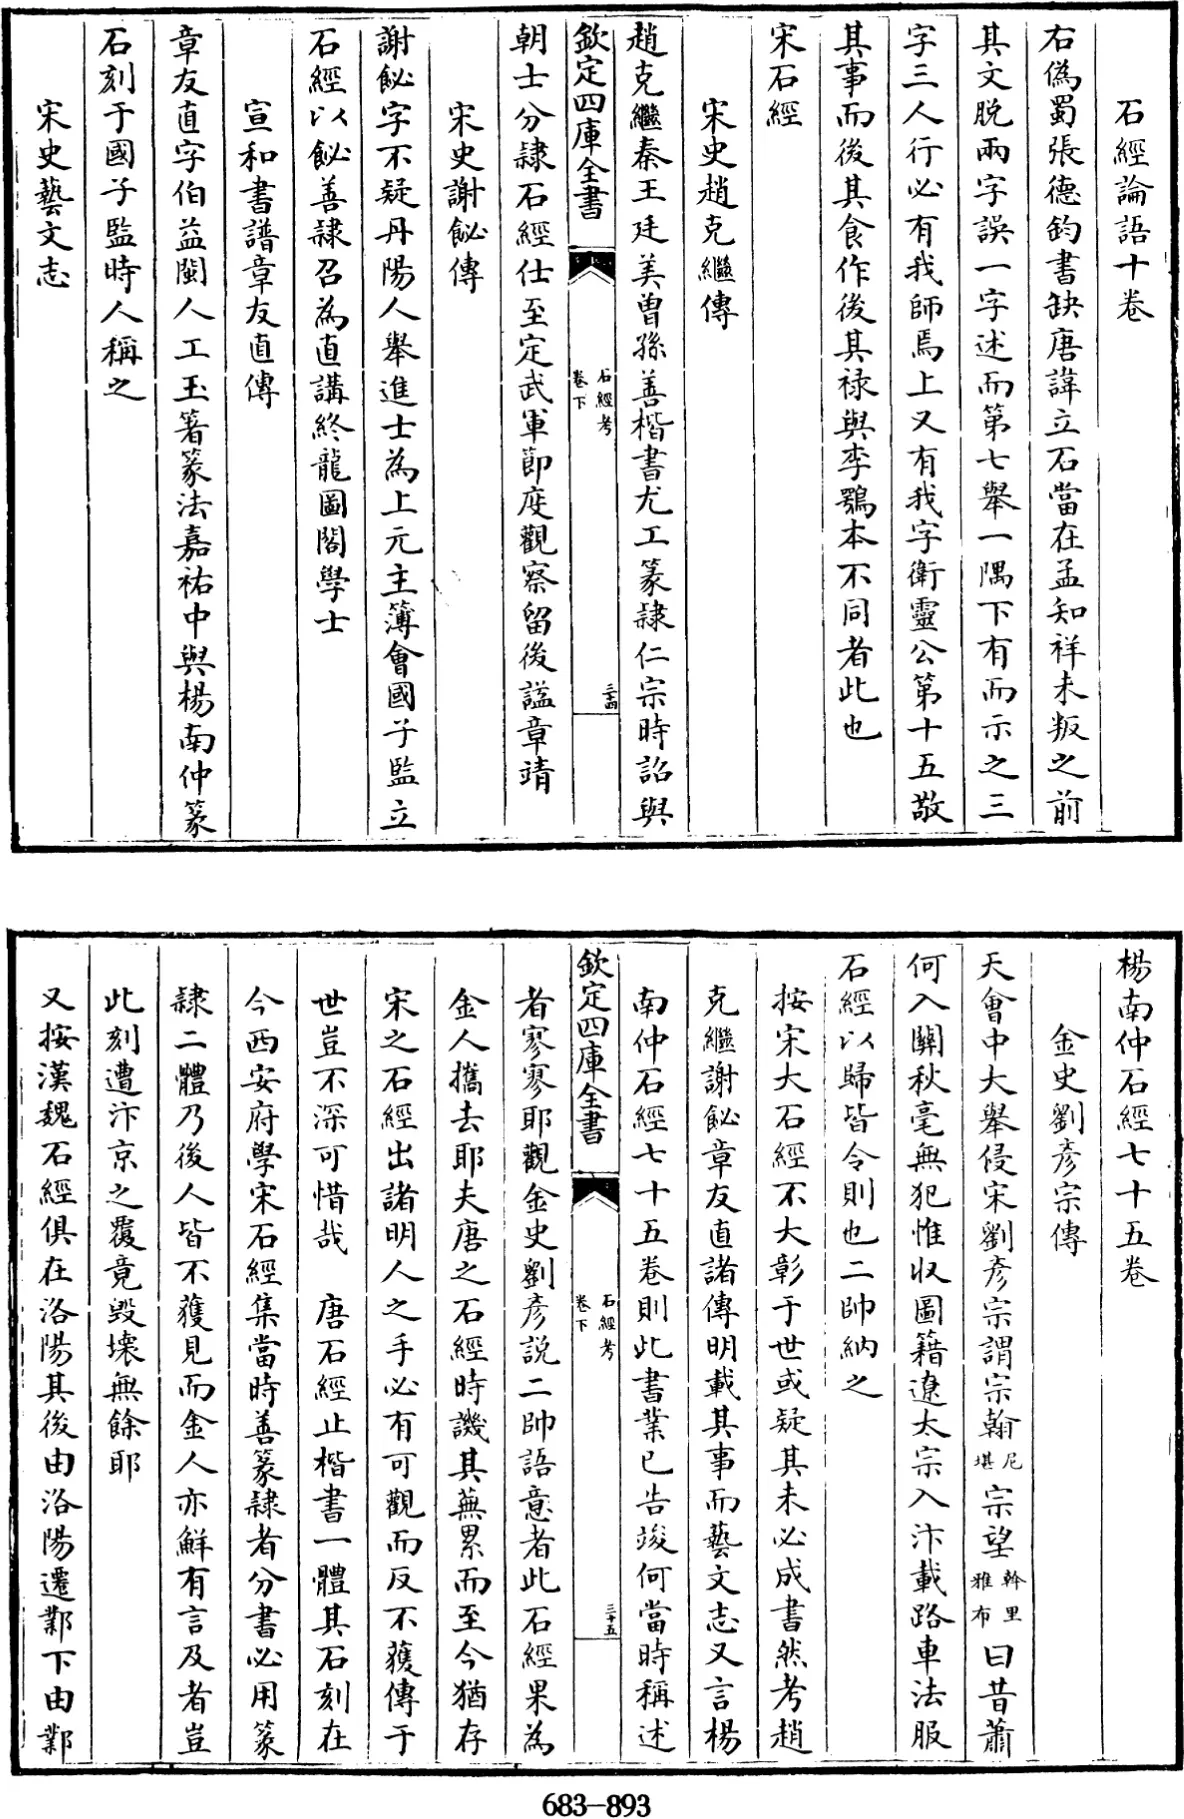 石經論語十卷
右偽蜀張德鈞書缺唐諱立石當在孟知祥未叛之前
其文脫兩字誤一字述而第七舉一隅下有而示之三
字三人行必有我師焉上又有我字衛靈公第十五敬
其事而後其食作後其祿與李鶚本不同者此也
宋石經
宋史趙克繼傳
趙克繼秦王廷美曾孫善楷書尤工篆隸仁宗時詔與
欽定四庫全書
石經考
卷下
三十四
朝士分隸石經仕至定武軍節度觀察留後諡章靖
宋史謝飶傳
謝飶字不疑丹陽人舉進士為上元主簿會國子監立
石經以飶善隸召為直講終龍圖閣學士
宣和書譜章友直傳
章友直字伯益閩人工玉箸篆法嘉祐中與楊南仲篆
石刻于國子監時人稱之
宋史藝文志
楊南仲石經七十五卷
金史劉彥宗傳
天會中大舉侵宋劉彥宗謂宗翰尼堪宗望斡里雅布曰昔蕭
何入關秋毫無犯惟收圖籍遼太宗入汴載路車法服
石經以歸皆令則也二帥納之
按宋大石經不大彰于世或疑其未必成書然考趙
克繼謝飶章友直諸傳明載其事而藝文志又言楊
南仲石經七十五卷則此書業已告竣何當時稱述
欽定四庫全書
石經考
卷下
三十五
者寥寥耶觀金史劉彥說二帥語意者此石經果為
金人攜去耶夫唐之石經時譏其蕪累而至今猶存
宋之石經出諸明人之手必有可觀而反不獲傳于
世豈不深可惜哉　唐石經止楷書一體其石刻在
今西安府學宋石經集當時善篆隸者分書必用篆
隸二體乃後人皆不獲見而金人亦鮮有言及者豈
此刻遭汴京之覆竟毀壞無餘耶
又按漢魏石經俱在洛陽其後由洛陽遷鄴下由鄴
683-893